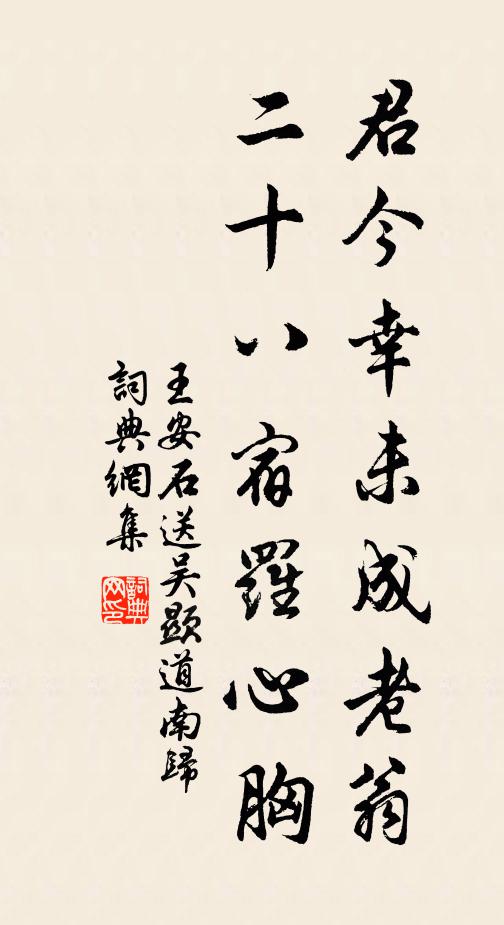 君今幸未成老翁
二十八宿羅心胸
王安石送吴顯道南歸
詞典網集
詞典網印